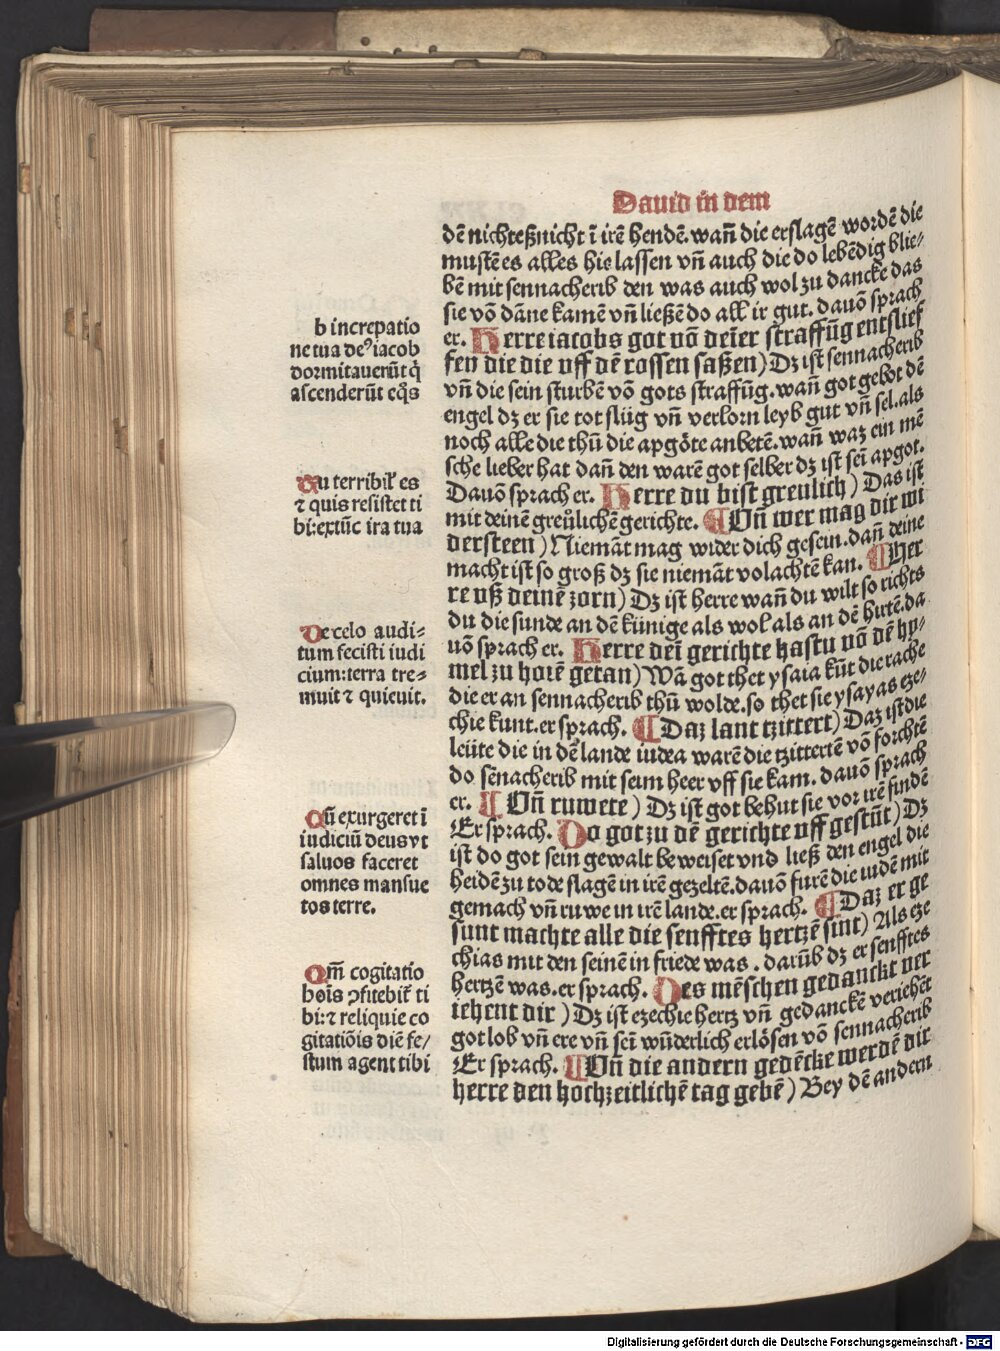 Dauid in dem
dē nichteßnicht ī irē hendē. wañ die erslagē wordē die
mustē es alles hie lassen vñ auch die do lebēdig blie⸗
bē mit sennacherib den was auch wol zu dancke das
sie vō dāne kamē vñ ließē do all ir gut. dauō sprach
er. Herre iacobs got vō deīer straffūg entslief
fen die die vff dē rossen saßen) Dz ist sennacherib
vñ die sein sturbē vō gots straffūg. wañ got gebot dē
engel dz er sie tot slüg vñ verlorn leyb gut vñ sel. als
noch alle die thū die apgöte anbetē. wañ waz ein mē
sche lieber hat dañ den warē got selber dz ist seī apgot.
Dauō sprach er. Herre du bist greulich) Das ist
mit deinē greülichē gerichte. ¶ Vñ wer mag dir wi
dersteen) Niemāt mag wider dich gesein. dañ deine
macht ist so groß dz sie niemāt volachtē kan. ¶ Her
re vß deinē zorn) Dz ist herre wañ du wilt so richts
du die sunde an dē künige als wol als an dē hirtē. da
uō sprach er. Herre deī gerichte hastu vō dē hy⸗
mel zu horē getan) Wā got thet ysaia kūt die rache
die er an sennacherib thū wolde. so thet sie ysayas eze⸗
chie kunt. er sprach. ¶ Daz lant tzittert) Daz ist die
leüte die in dē lande iudea warē die tzittertē vō forchtē
do sēnacherib mit seim heer vff sie kam. dauō sprach
er. ¶ Vñ ruwete) Dz ist got behut sie vor irē findē
Er sprach. Do got zu dē gerichte vff gestūt) Dz
ist do got sein gewalt beweiset vnd ließ den engel die
heidē zu tode slagē in irē gezeltē. dauō furē die iudē mit
gemach vñ ruwe in irē lande. er sprach. ¶ Daz er ge
sunt machte alle die senfftes hertzē sint) Als eze
chias mit den seinē in friede was. darūb dz er senfftes
hertzē was. er sprach. Des mēschen gedanckt ver
iehent dir) Dz ist ezechie hertz vñ gedanckē veriehēt
got lob vñ ere vñ seī wūderlich erlösen vō sennacherib
Er sprach. ¶ Vñ die andern gedēcke werdē dir
herre den hochzeitlichē tag gebē) Bey dē andern
b increpatio
ne tua deꝰ iacob
dormitauerūt q̄
ascenderūt eq̄s
Tu terribil' es
⁊ quis resistet ti
bi: extūc ira tua
De celo audi⸗
tum fecisti iudi
cium: terra tre⸗
muit ⁊ quieuit.
Cū exurgeret ī
iudiciū deus vt
saluos faceret
omnes mansue
tos terre.
Qm̄ cogitatio
hoīs ꝓfitebit̄ ti
bi: ⁊ reliquie co
gitatiōis diē fe/
stum agent tibi
Digitalisierung gefördert durch die Deutsche Forschungsgemeinschaft - DFG